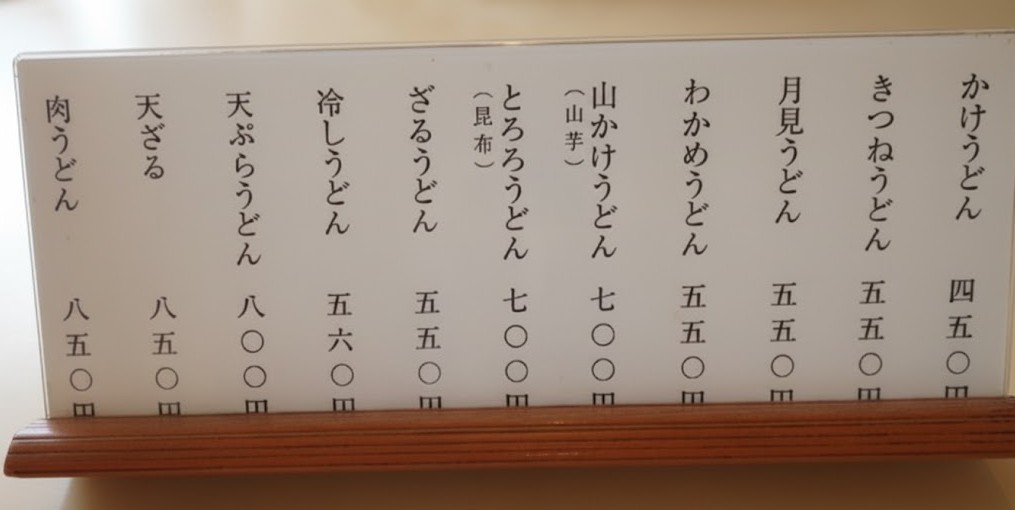 かけうどん 四五〇円
きつねうどん 五五〇円
月見うどん 五五〇円
わかめうどん 五五〇円
山かけうどん 七〇〇円
（山芋）
とろろうどん 七〇〇円
（昆布）
ざるうどん 五五〇円
冷しうどん 五六〇円
天ぷらうどん 八〇〇円
天ざる 八五〇円
肉うどん 八五〇円